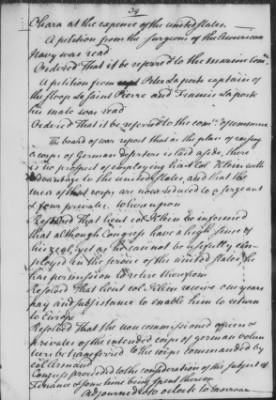 39
Clkara at the expence of the united states.
A petition from the surgeons of the American
Navy was read
Ordered That it be referred to the marine Com.
A petition from Peter La porte captain of
the sloop La Saint Pierre and Francis La porte
his mate was read
Ordered That it be referred to the com.ee of commerce
The board of war report that as the plan of raising
a corps of German deserters is laid aside, there
is no prospect of employing lieut col Klein with
advantage to the united states, and that the
men of that corps are now reduced to a sergeant
& four privates. Whereupon
Resolved That lieut col Klein be informed
that although Congress have a high sense of
his zeal, yet as he cannot be usefully em
ployed in the service of the united states, he
has permission to retire therefrom
Resolved That lieut col Klein receive one years
pay and subsistance to enable him to return
to Europe
Resolved That the non commissioned officer &
privates of the intended corps of german volun
teers be transferred to the corps commanded by
col Armand
Congress proceeded to the consideration of the subject of
Finance & some time being spent thereon
adjourned to 10 o clock to morrow